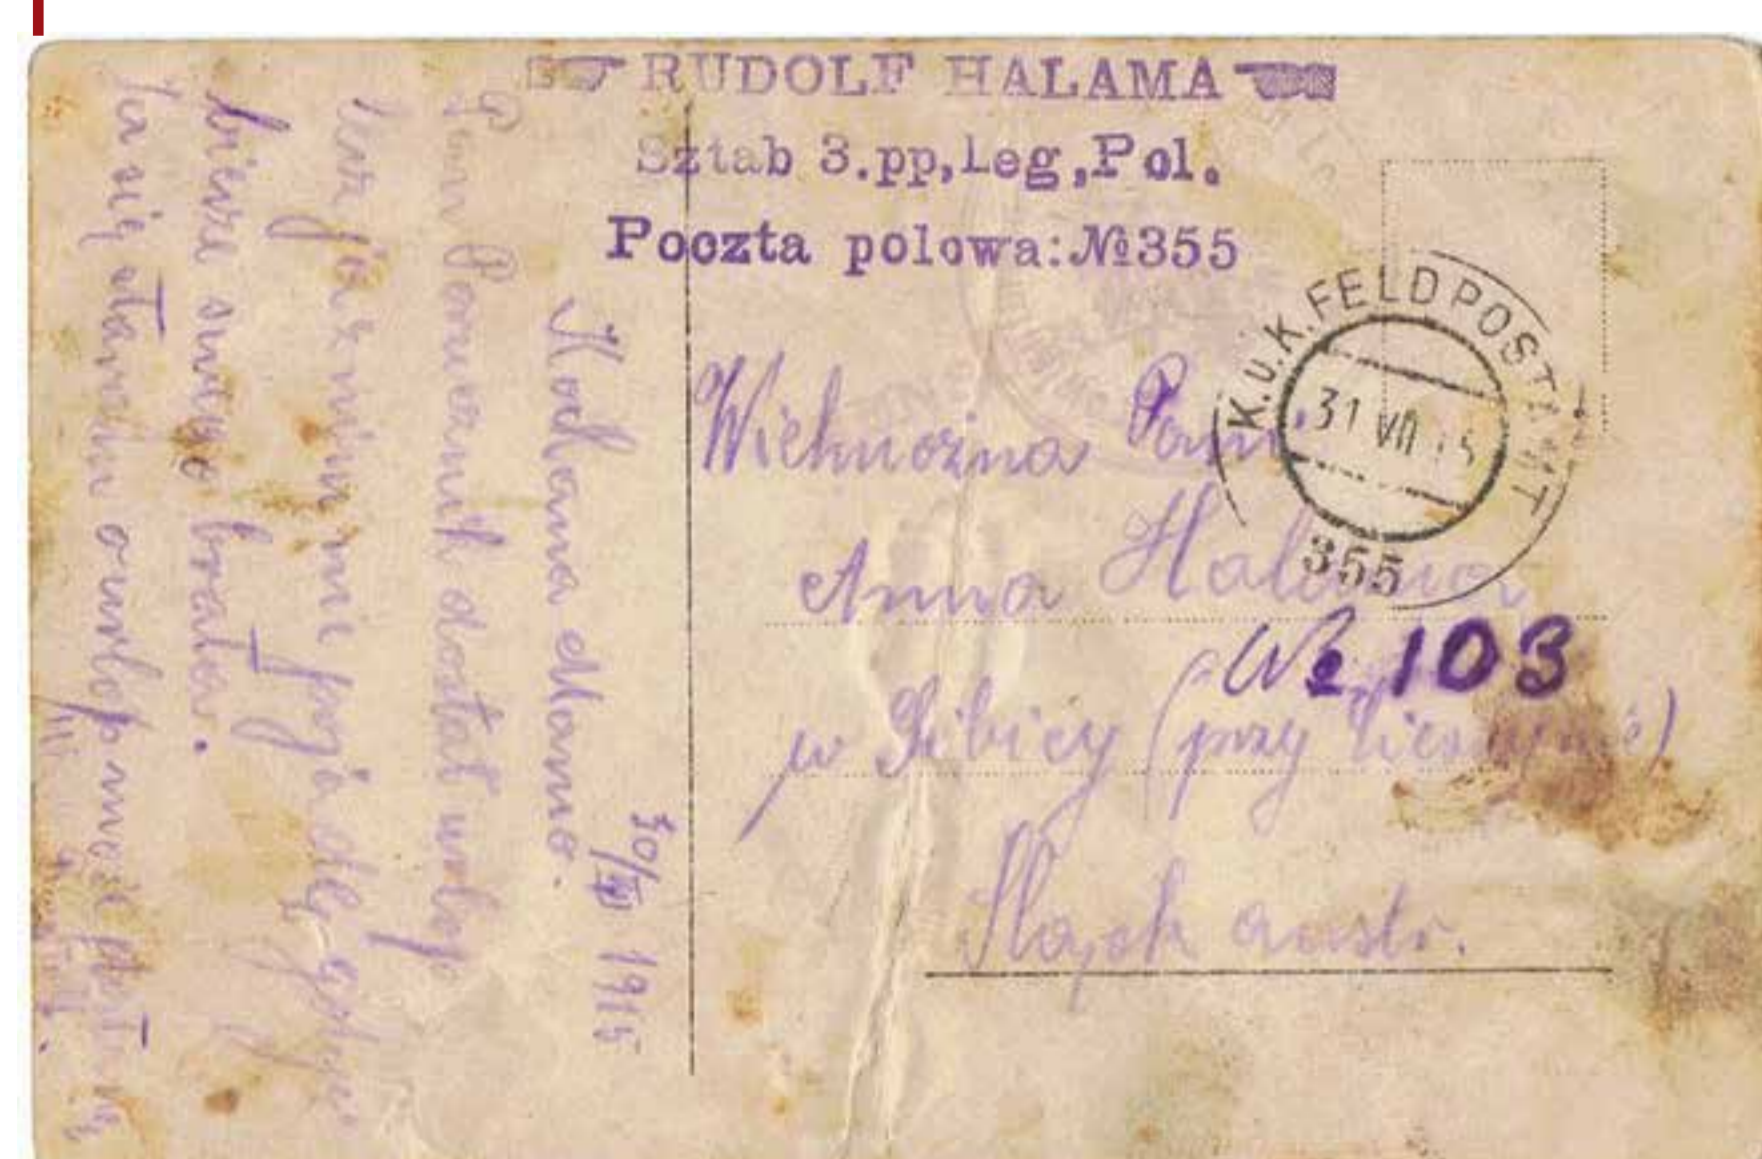 RUDOLF HALAMA
Sztab 3.pp,Leg,Pol.
Poczta polowa:№355
K.u.K. FELDPOSTAMT
31 VII 15
355
Wielmożna Pani
Anna Halama
№ 103
w Sibicy (przy Cieszynie)
Śląsk austr.
30/VII 1915
Kochana Mamo.
Pan Porucznik dostał urlop
jak nim nie pojadę, gdyż
bierze swego brata.
Ja się staram o urlop może